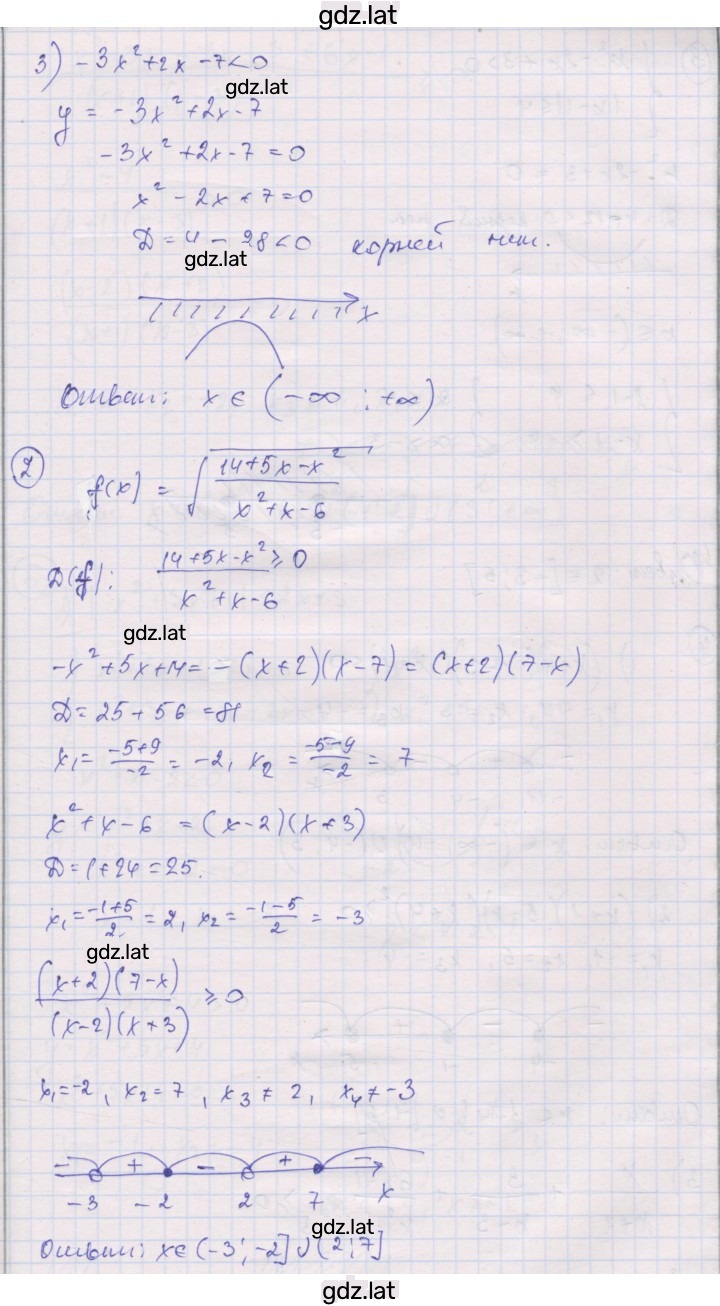 gdz.lat
3) -3x²+2x-7<0
gdz.lat
y = -3x²+2x-7
-3x²+2x-7=0
x²-2x+7=0
D=4-28<0 корней нет.
gdz.lat
x
Ответ: x∈(-∞;+∞)
2
f(x) = √((14+5x-x²)/(x²+x-6))
D(f): (14+5x-x²)/(x²+x-6) ≥0
gdz.lat
-x²+5x+14=-(x+2)(x-7)=(x+2)(7-x)
D=25+56=81
x₁=(-5+9)/(-2)=-2, x₂=(-5-9)/(-2)=7
x²+x-6=(x-2)(x+3)
D=1+24=25.
x₁=(-1+5)/2=2, x₂=(-1-5)/2=-3
gdz.lat
((x+2)(7-x))/((x-2)(x+3)) ≥0
x₁=-2, x₂=7, x₃≠2, x₄≠-3
- + - + -
-3 -2 2 7 x
gdz.lat
Ответ: x∈(-3;-2]∪(2;7]
gdz.lat